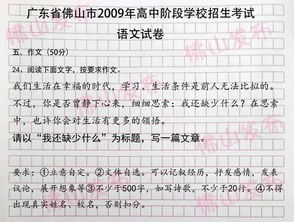 广东省佛山市2009年高中阶段学校招生考试
语文试卷
五、作文（50分）
24、阅读下面文字，按要求作文。
我们生活在幸福的时代，学习、生活条件是前人无法比拟的。
不过，你是否曾静下心来，细细思索：我还缺少什么？在思索
中，也许你会对生活有更多的领悟。
请以“我还缺少什么”为标题，写一篇文章。
要求：①立意自定。②文体自选。可以记叙经历，抒发感情，发表
议论，展开想象等③不少于500字，如写诗歌，不少于20行。④不得
出现真实姓名、校名，否则扣分。
佛山发布
佛山发布
佛山发布